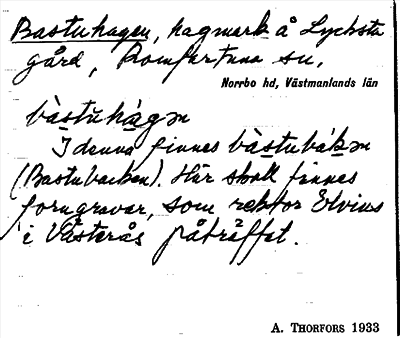 Bastuhagen, hagmark å Lycksta
gård, Romfartuna sn,
Norrbo hd, Västmanlands län
bàstŭhágɘn
I denna finnes bàstubákɘn
(Bastubacken). Här skall finnes
forngravar, som rektor Elvius
i Västerås påträffat.
A. THORFORS 1933